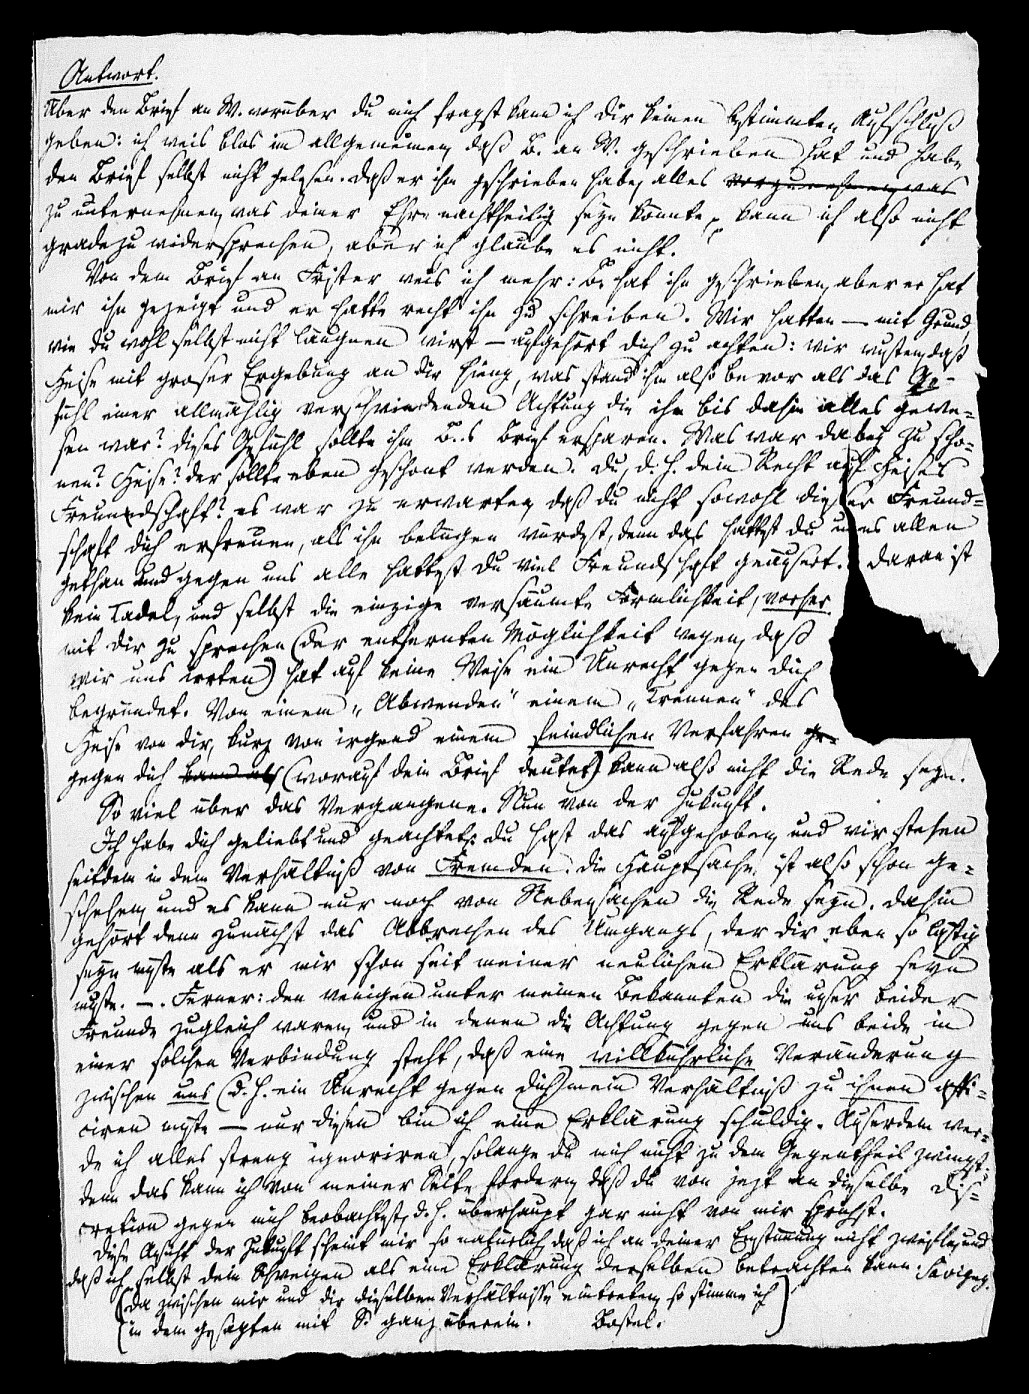 Antwort.
Über den Brief an W. worüber du mich fragst kann ich dir keinen bestimmten Aufschluß
geben: ich weis blos im allgemeinen, daß B. an W. geschrieben hat und habe
den Brief selbst nicht gelesen. daß er ihm geschrieben habe, alles vorzunehmen, was
zu unternehmen, was deiner Ehre nachtheilig seyn könnte, kann ich also nicht
gradezu widersprechen, aber ich glaube es nicht.
Von dem Brief an Frister weis ich mehr: B. hat ihn geschrieben, aber er hat
mir ihn gezeigt und er hatte recht ihn zu schreiben. Wir hatten — mit Grund,
wie du wohl selbst nicht läugnen wirst — aufgehört dich zu achten: wir wusten, daß
Heise mit groser Ergebung an dir hieng, was stand ihm also bevor als das Ge-
fühl einer allmählig verschwindenden Achtung die ihm bis dahin alles gewe-
sen war? dieses Gefühl sollte ihm B..s Brief ersparen. Was war dabey zu scho-
nen? Heise? der sollte eben geschont werden. Du, d. h. dein Recht auf Heises
Freundschaft? es war zu erwarten, daß du nicht sowohl dieser Freund-
schaft dich erfreuen, als ihn belügen würdest, denn das hattest du uns allen
gethan und gegen uns alle hattest du viel Freundschaft geäusert. Daran ist
kein Tadel, und selbst die einzige versäumte Förmlichkeit, vorher
mit dir zu sprechen (der entfernten Möglichkeit wegen, daß
wir uns irrten) hat auf keine Weise ein Unrecht gegen dich
begründet. Von einem „Abwenden" einem „Trennen" des
Heise von dir, kurz von irgend einem feindlichen Verfahren ge-
gegen dich kann als (worauf dein Brief deutet) kann also nicht die Rede seyn.
So viel über das Vergangene. Nun von der Zukunft.
Ich habe dich geliebt und geachtet: du hast das aufgehoben, und wir stehen
seitdem in dem Verhältniß von Fremden. die Hauptsache ist also schon ge-
schehen, und es kann nur noch von Nebensachen die Rede seyn. dahin
gehört denn zunächst das Abbrechen des Umgangs, der dir eben so lästig
seyn muste als er mir schon seit meiner neulichen Erklärung seyn
muste. —. Ferner: den wenigen unter meinen Bekannten die unser beider
Freunde zugleich waren, und in denen die Achtung gegen uns beide in
einer solchen Verbindung steht, daß eine willkührliche Veränderung
zwischen uns (d. h. ein Unrecht gegen dich) mein Verhältniß zu ihnen affi-
ciren müste — nur diesen bin ich eine Erklärung schuldig. Auserdem wer-
de ich alles streng ignoriren, solange du mich nicht zu dem Gegentheil zwingst.
denn das kann ich von meiner Seite fordern, daß du von jezt an dieselbe Dis-
cretion gegen mich beobachtest, d. h. überhaupt gar nicht von mir sprichst.
Diese Ansicht der Zukunft scheint mir so natürlich, daß ich an deiner Einstimmung nicht zweifle, und
daß ich selbst dein Schweigen als eine Erklärung derselben betrachten kann. Savigny.
(Da zwischen mir und dir dieselben Verhältnisse eintreten, so stimme ich
in dem gesagten mit S. ganz überein. Bostel.)